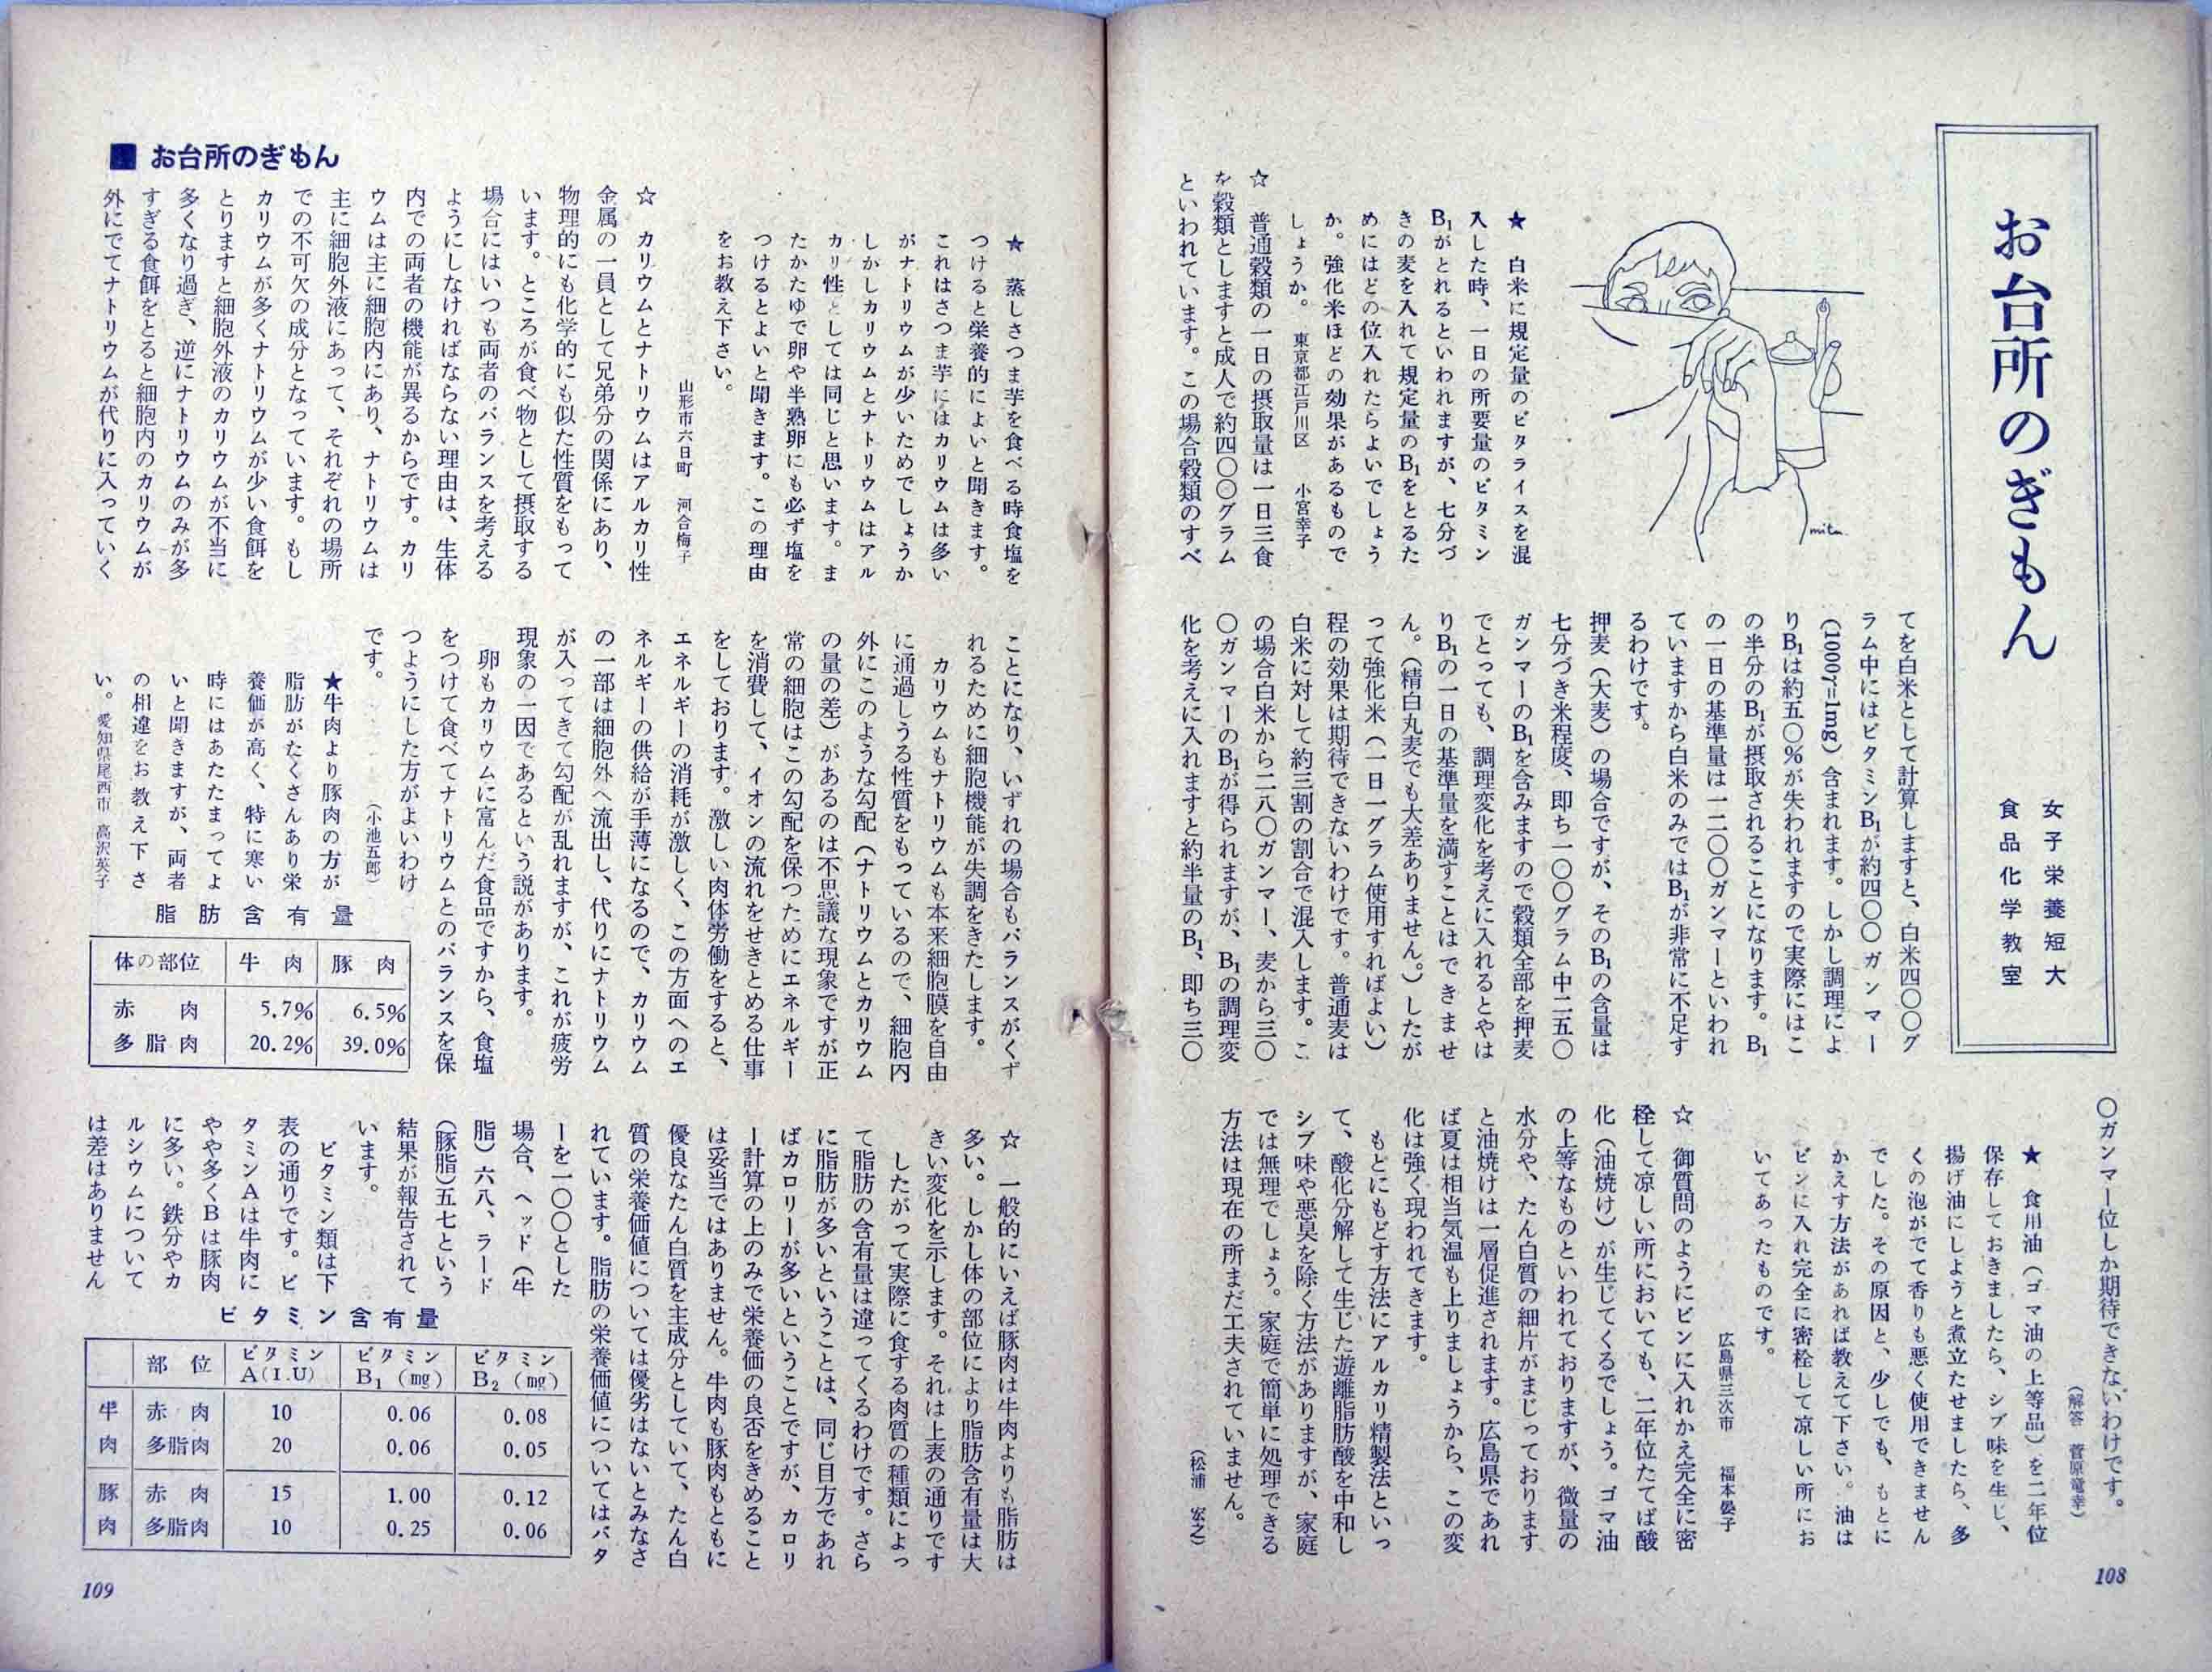 お台所のぎもん
女子栄養短大
食品化学教室
mitu
★　白米に規定量のビタライスを混
入した時、一日の所要量のビタミン
B₁がとれるといわれますが、七分づ
きの麦を入れて規定量のB₁をとるた
めにはどの位入れたらよいでしょう
か。強化米ほどの効果があるもので
しょうか。　東京都江戸川区　小宮幸子
☆　普通穀類の一日の摂取量は一日三食
を穀類としますと成人で約四〇〇グラム
といわれています。この場合穀類のすべ
てを白米として計算しますと、白米四〇〇グ
ラム中にはビタミンB₁が約四〇〇ガンマー
(1000γ=1mg) 含まれます。しかし調理によ
りB₁は約五〇％が失われますので実際にはこ
の半分のB₁が摂取されることになります。B₁
の一日の基準量は一二〇〇ガンマーといわれ
ていますから白米のみではB₁が非常に不足す
るわけです。
押麦（大麦）の場合ですが、そのB₁の含量は
七分づき米程度、即ち一〇〇グラム中二五〇
ガンマーのB₁を含みますので穀類全部を押麦
でとっても、調理変化を考えに入れるとやは
りB₁の一日の基準量を満すことはできませ
ん。（精白丸麦でも大差ありません。）したが
って強化米（一日一グラム使用すればよい）
程の効果は期待できないわけです。普通麦は
白米に対して約三割の割合で混入します。こ
の場合白米から二八〇ガンマー、麦から三〇
〇ガンマーのB₁が得られますが、B₁の調理変
化を考えに入れますと約半量のB₁、即ち三〇
〇ガンマー位しか期待できないわけです。
（解答　菅原竜幸）
★　食用油（ゴマ油の上等品）を二年位
保存しておきましたら、シブ味を生じ、
揚げ油にしようと煮立たせましたら、多
くの泡がでて香りも悪く使用できません
でした。その原因と、少しでも、もとに
かえす方法があれば教えて下さい。油は
ビンに入れ完全に密栓して凉しい所にお
いてあったものです。
広島県三次市　福本晏子
☆　御質問のようにビンに入れかえ完全に密
栓して凉しい所においても、二年位たてば酸
化（油焼け）が生じてくるでしょう。ゴマ油
の上等なものといわれておりますが、微量の
水分や、たん白質の細片がまじっております
と油焼けは一層促進されます。広島県であれ
ば夏は相当気温も上りましょうから、この変
化は強く現われてきます。
もとにもどす方法にアルカリ精製法といっ
て、酸化分解して生じた遊離脂肪酸を中和し
シブ味や悪臭を除く方法がありますが、家庭
では無理でしょう。家庭で簡単に処理できる
方法は現在の所まだ工夫されていません。
（松浦　宏之）
108
■ お台所のぎもん
★　蒸しさつま芋を食べる時食塩を
つけると栄養的によいと聞きます。
これはさつま芋にはカリウムは多い
がナトリウムが少いためでしょうか
しかしカリウムとナトリウムはアル
カリ性としては同じと思います。ま
たかたゆで卵や半熟卵にも必ず塩を
つけるとよいと聞きます。この理由
をお教え下さい。
山形市六日町　河合梅子
☆　カリウムとナトリウムはアルカリ性
金属の一員として兄弟分の関係にあり、
物理的にも化学的にも似た性質をもって
います。ところが食べ物として摂取する
場合にはいつも両者のバランスを考える
ようにしなければならない理由は、生体
内での両者の機能が異るからです。カリ
ウムは主に細胞内にあり、ナトリウムは
主に細胞外液にあって、それぞれの場所
での不可欠の成分となっています。もし
カリウムが多くナトリウムが少い食餌を
とりますと細胞外液のカリウムが不当に
多くなり過ぎ、逆にナトリウムのみが多
すぎる食餌をとると細胞内のカリウムが
外にでてナトリウムが代りに入っていく
ことになり、いずれの場合もバランスがくず
れるために細胞機能が失調をきたします。
カリウムもナトリウムも本来細胞膜を自由
に通過しうる性質をもっているので、細胞内
外にこのような勾配（ナトリウムとカリウム
の量の差）があるのは不思議な現象ですが正
常の細胞はこの勾配を保つためにエネルギー
を消費して、イオンの流れをせきとめる仕事
をしております。激しい肉体労働をすると、
エネルギーの消耗が激しく、この方面へのエ
ネルギーの供給が手薄になるので、カリウム
の一部は細胞外へ流出し、代りにナトリウム
が入ってきて勾配が乱れますが、これが疲労
現象の一因であるという説があります。
卵もカリウムに富んだ食品ですから、食塩
をつけて食べてナトリウムとのバランスを保
つようにした方がよいわけ
です。　（小池五郎）
★牛肉より豚肉の方が
脂肪がたくさんあり栄
養価が高く、特に寒い
時にはあたたまってよ
いと聞きますが、両者
の相違をお教え下さ
い。　愛知県尾西市　高沢英子
脂肪含有量
体の部位　牛肉　豚肉
赤肉　5.7%　6.5%
多脂肉　20.2%　39.0%
☆　一般的にいえば豚肉は牛肉よりも脂肪は
多い。しかし体の部位により脂肪含有量は大
きい変化を示します。それは上表の通りです
したがって実際に食する肉質の種類によっ
て脂肪の含有量は違ってくるわけです。さら
に脂肪が多いということは、同じ目方であれ
ばカロリーが多いということですが、カロリ
ー計算の上のみで栄養価の良否をきめること
は妥当ではありません。牛肉も豚肉もともに
優良なたん白質を主成分としていて、たん白
質の栄養価値については優劣はないとみなさ
れています。脂肪の栄養価値についてはバタ
ーを一〇〇とした
場合、ヘッド（牛
脂）六八、ラード
（豚脂）五七という
結果が報告されて
います。
ビタミン類は下
表の通りです。ビ
タミンＡは牛肉に
やや多くＢは豚肉
に多い。鉄分やカ
ルシウムについて
は差はありません
ビタミン含有量
部位　ビタミンA(I.U)　ビタミンB₁(mg)　ビタミンB₂(mg)
牛肉　赤肉　10　0.06　0.08
多脂肉　20　0.06　0.05
豚肉　赤肉　15　1.00　0.12
多脂肉　10　0.25　0.06
109